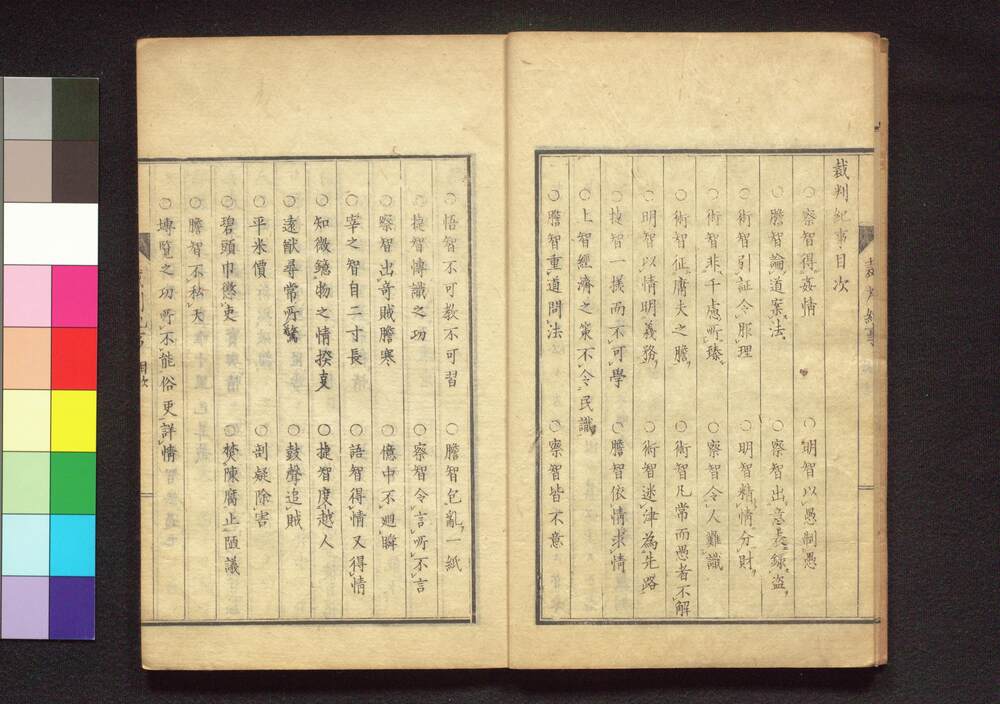 裁判紀事目次
○察智得姦情 ○明智以愚制愚
○膽智論道案法 ○察智出意表録盗
○術智引証令服理 ○明智精情分財
○術智非千慮所臻 ○察智令人難識
○術智征庸夫之膽 ○術智凡常而愚者不解
○明智以情明義務 ○術智迷津為先路
○捷智一撲而不可學 ○膽智依情求情
○上智經濟之策不令民識
○膽智重道問法 ○察智皆不意
○悟智不可教不可習 ○膽智乞亂一紙
○捷智博識之功 ○察智令言所不言
○察智出奇賊膽寒 ○億中不廻瞬
○宰之智自二寸長 ○語智得情又得情
知微鏡物之情揆変 ○捷智度越人
○遠猷尋常所驚 ○鼓聲追賊
○平米價 ○剖疑除害
○碧頭巾懲吏 ○焚陳腐止陋議
○膽智不私天
○博覧之功所不能俗吏詳情